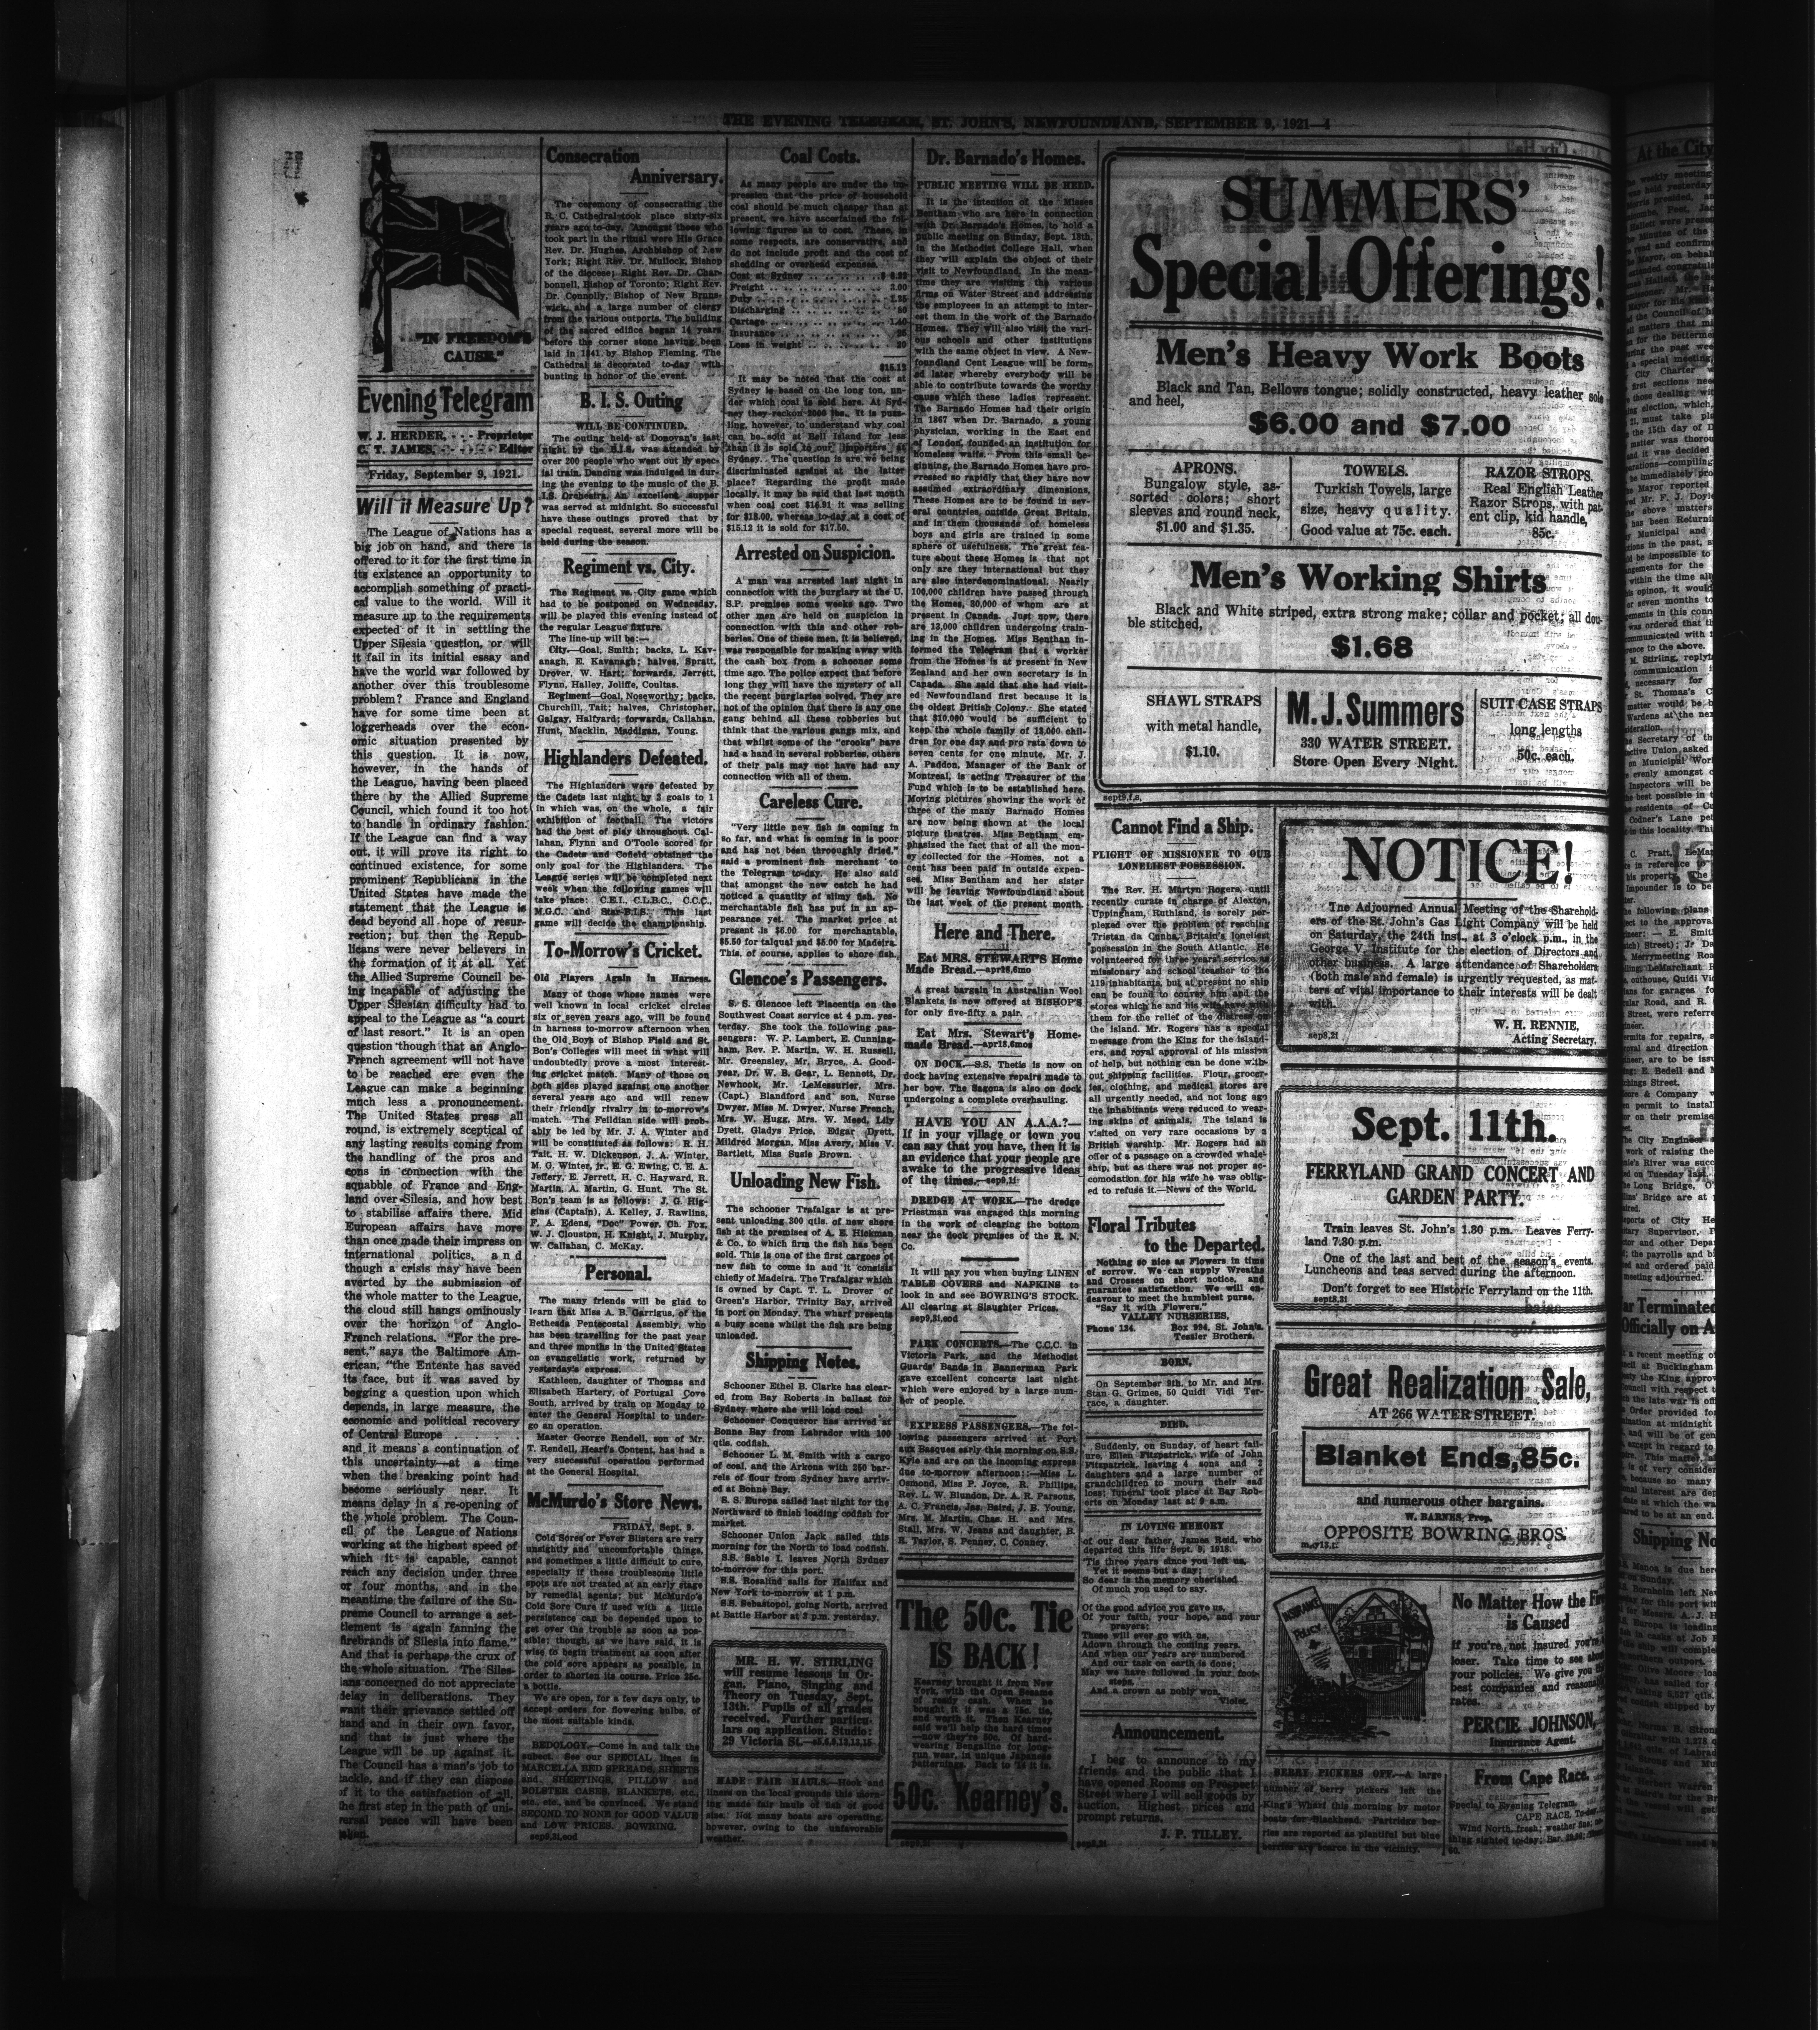 THE EVENING TELEGRAM, ST. JOHN'S, NEWFOUNDLAND, SEPTEMBER 9, 1921—4
"IN FREEDOM'S
CAUSE."
Evening Telegram
W. J. HERDER, - - - Proprietor
C. T. JAMES, - - - - - Editor
Friday, September 9, 1921.
Will it Measure Up?
The League of Nations has a
big job on hand, and there is
offered to it for the first time in
its existence an opportunity to
accomplish something of practi-
cal value to the world. Will it
measure up to the requirements
expected of it in settling the
Upper Silesia question, or will
it fail in its initial essay and
have the world war followed by
another over this troublesome
problem? France and England
have for some time been at
loggerheads over the econ-
omic situation presented by
this question. It is now,
however, in the hands of
the League, having been placed
there by the Allied Supreme
Council, which found it too hot
to handle in ordinary fashion.
If the League can find a way
out, it will prove its right to
continued existence, for some
prominent Republicans in the
United States have made the
statement that the League is
dead beyond all hope of resur-
rection; but then the Repub-
licans were never believers in
the formation of it at all. Yet
the Allied Supreme Council be-
ing incapable of adjusting the
Upper Silesian difficulty had to
appeal to the League as "a court
of last resort." It is an open
question though that an Anglo-
French agreement will not have
to be reached ere even the
League can make a beginning
much less a pronouncement.
The United States press all
round, is extremely sceptical of
any lasting results coming from
the handling of the pros and
cons in connection with the
squabble of France and Eng-
land over Silesia, and how best
to stabilise affairs there. Mid
European affairs have more
than once made their impress on
international politics, and
though a crisis may have been
averted by the submission of
the whole matter to the League,
the cloud still hangs ominously
over the horizon of Anglo-
French relations. "For the pre-
sent," says the Baltimore Am-
erican, "the Entente has saved
its face, but it was saved by
begging a question upon which
depends, in large measure, the
economic and political recovery
of Central Europe . . . . .
and it means a continuation of
this uncertainty—at a time
when the breaking point had
become seriously near. It
means delay in a re-opening of
the whole problem. The Coun-
cil of the League of Nations
working at the highest speed of
which it is capable, cannot
reach any decision under three
or four months, and in the
meantime the failure of the Su-
preme Council to arrange a set-
tlement is again fanning the
firebrands of Silesia into flame."
And that is perhaps the crux of
the whole situation. The Siles-
ians concerned do not appreciate
delay in deliberations. They
want their grievance settled off
hand and in their own favor,
and that is just where the
League will be up against it.
The Council has a man's job to
tackle, and if they can dispose
of it to the satisfaction of all,
the first step in the path of uni-
versal peace will have been
taken.
Consecration
Anniversary.
The ceremony of consecrating the
R. C. Cathedral took place sixty-six
years ago to-day. Amongst those who
took part in the ritual were His Grace
Rev. Dr. Hughes, Archbishop of New
York; Right Rev. Dr. Mullock, Bishop
of the diocese; Right Rev. Dr. Char-
bonnell, Bishop of Toronto; Right Rev.
Dr. Connolly, Bishop of New Bruns-
wick, and a large number of clergy
from the various outports. The building
of the sacred edifice began 14 years
before the corner stone having been
laid in 1841 by Bishop Fleming. The
Cathedral is decorated to-day with
bunting in honor of the event.
B. I. S. Outing
WILL BE CONTINUED.
The outing held at Donovan's last
night by the B.I.S. was attended by
over 200 people who went out by spec-
ial train. Dancing was indulged in dur-
ing the evening to the music of the B.
I.S. Orchestra. An excellent supper
was served at midnight. So successful
have these outings proved that by
special request, several more will be
held during the season.
Regiment vs. City.
The Regiment vs. City game which
had to be postponed on Wednesday,
will be played this evening instead of
the regular League fixture.
The line-up will be:—
City—Goal, Smith; backs, L. Kav-
anagh, E. Kavanagh; halves, Spratt,
Drover, W. Hart; forwards, Jerrett,
Flynn, Halley, Joliffe, Coultas.
Regiment—Goal, Noseworthy; backs,
Churchill, Tait; halves, Christopher,
Galgay, Halfyard; forwards, Callahan,
Hunt, Macklin, Maddigan, Young.
Highlanders Defeated.
The Highlanders were defeated by
the Cadets last night by 3 goals to 1
in which was, on the whole, a fair
exhibition of football. The victors
had the best of play throughout. Cal-
lahan, Flynn and O'Toole scored for
the Cadets and Cofield obtained the
only goal for the Highlanders. The
League series will be completed next
week when the following games will
take place: C.E.I., C.L.B.C., C.C.C.,
M.G.C. and Star-B.I.S. This last
game will decide the championship.
To-Morrow's Cricket.
Old Players Again in Harness.
Many of those whose names were
well known in local cricket circles
six or seven years ago, will be found
in harness to-morrow afternoon when
the Old Boys of Bishop Field and St.
Bon's Colleges will meet in what will
undoubtedly prove a most interest-
ing cricket match. Many of those on
both sides played against one another
several years ago and will renew
their friendly rivalry in to-morrow's
match. The Feildian side will prob-
ably be led by Mr. J. A. Winter and
will be constituted as follows: R. H.
Tait, H. W. Dickenson, J. A. Winter,
M. G. Winter, jr., E. G. Ewing, C. E. A.
Jeffery, E. Jerrett, H. C. Hayward, R.
Martin, A. Martin, G. Hunt. The St.
Bon's team is as follows: J. G. Hig-
gins (Captain), A. Kelley, J. Rawlins,
F. A. Edens, "Doc" Power, Ch. Fox,
W. J. Clouston, H. Knight, J. Murphy,
W. Callahan, C. McKay.
Personal.
The many friends will be glad to
learn that Miss A. B. Garrigus, of the
Bethesda Pentecostal Assembly, who
has been travelling for the past year
and three months in the United States
on evangelistic work, returned by
yesterday's express.
Kathleen, daughter of Thomas and
Elizabeth Hartery, of Portugal Cove
South, arrived by train on Monday to
enter the General Hospital to under-
go an operation.
Master George Rendell, son of Mr.
T. Rendell, Heart's Content, has had a
very successful operation performed
at the General Hospital.
McMurdo's Store News.
FRIDAY, Sept. 9.
Cold Sores or Fever Blisters are very
unsightly and uncomfortable things,
and sometimes a little difficult to cure,
especially if these troublesome little
spots are not treated at an early stage
by remedial agents; but McMurdo's
Cold Sore Cure if used with a little
persistence can be depended upon to
get over the trouble as soon as pos-
sible; though, as we have said, it is
wise to begin treatment as soon after
the cold sore appears as possible, in
order to shorten its course. Price 25c.
a bottle.
We are open, for a few days only, to
accept orders for flowering bulbs, of
the most suitable kinds.
BEDOLOGY.—Come in and talk the
subect. See our SPECIAL lines in
MARCELLA BED SPREADS, SHEETS
and SHEETINGS, PILLOW and
BOLSTER CASES, BLANKETS, etc.,
etc., etc., and be convinced. We stand
SECOND TO NONE for GOOD VALUE
and LOW PRICES. BOWRING.
sep9,2i,eod
Coal Costs.
As many people are under the im-
pression that the price of household
coal should be much cheaper than at
present, we have ascertained the fol-
lowing figures as to cost. These, in
some respects, are conservative, and
do not include profit and the cost of
shedding or overhead expenses.
Cost at Sydney
Freight .. 2.00
Duty
Discharging
Cartage
Insurance
Loss in weight
$15.12
It may be noted that the cost at
Sydney is based on the long ton, un-
der which coal is sold here. At Syd-
ney they reckon 2000 lbs. It is puzz-
ling, however, to understand why coal
can be sold at Bell Island for less
than it is sold to our importers at
Sydney. The question is are we being
discriminated against at the latter
place? Regarding the profit made
locally, it may be said that last month
when coal cost $16.91 it was selling
for $18.00, whereas to-day at a cost of
$15.12 it is sold for $17.50.
Arrested on Suspicion.
A man was arrested last night in
connection with the burglary at the U.
S.P. premises some weeks ago. Two
other men are held on suspicion in
connection with this and other rob-
beries. One of these men, it is believed,
was responsible for making away with
the cash box from a schooner some
time ago. The police expect that before
long they will have the mystery of all
the recent burglaries solved. They are
not of the opinion that there is any one
gang behind all these robberies but
think that the various gangs mix, and
that whilst some of the "crooks" have
had a hand in several robberies, others
of their pals may not have had any
connection with all of them.
Careless Cure.
"Very little new fish is coming in
so far, and what is coming in is poor
and has not been throughly dried,"
said a prominent fish merchant to
the Telegram to-day. He also said
that amongst the new catch he had
noticed a quantity of slimy fish. No
merchantable fish has put in an ap-
pearance yet. The market price at
present is $6.00 for merchantable,
$5.50 for talqual and $5.00 for Madeira.
This, of course, applies to shore fish.
Glencoe's Passengers.
S. S. Glencoe left Placentia on the
Southwest Coast service at 4 p.m. yes-
terday. She took the following pas-
sengers: W. P. Lambert, E. Cunning-
ham, Rev. P. Martin, W. H. Russell,
Mr. Greensley, Mr. Bryce, A. Good-
year, Dr. W. B. Gear, L. Bennett, Dr.
Newhook, Mr. LeMessurier, Mrs.
(Capt.) Blandford and son, Nurse
Dwyer, Miss M. Dwyer, Nurse French,
Mrs. W. Hugg, Mrs. W. Meed, Lily
Dyett, Gladys Price, Edgar Dyett,
Mildred Morgan, Miss Avery, Miss V.
Bartlett, Miss Susie Brown.
Unloading New Fish.
The schooner Trafalgar is at pre-
sent unloading 300 qtls. of new shore
fish at the premises of A. E. Hickman
& Co., to which firm the fish has been
sold. This is one of the first cargoes of
new fish to come in and it consists
chiefly of Madeira. The Trafalgar which
is owned by Capt. T. L. Drover of
Green's Harbor, Trinity Bay, arrived
in port on Monday. The wharf presents
a busy scene whilst the fish are being
unloaded.
Shipping Notes.
Schooner Ethel B. Clarke has clear-
ed from Bay Roberts in ballast for
Sydney where she will load coal
Schooner Conqueror has arrived at
Bonne Bay from Labrador with 100
qtls. codfish.
Schooner L. M. Smith with a cargo
of coal, and the Arkona with 250 bar-
rels of flour from Sydney have arriv-
ed at Bonne Bay.
S. S. Europa sailed last night for the
Northward to finish loading codfish for
market.
Schooner Union Jack sailed this
morning for the North to load codfish.
S.S. Sable I. leaves North Sydney
to-morrow for this port.
S.S. Rosalind sails for Halifax and
New York to-morrow at 1 p.m.
S.S. Sebastopol, going North, arrived
at Battle Harbor at 2 p.m. yesterday.
MR. H. W. STIRLING
will resume lessons in Or-
gan, Piano, Singing and
Theory on Tuesday, Sept.
13th. Pupils of all grades
received. Further particu-
lars on application. Studio:
29 Victoria St.
MADE FAIR HAULS.—Hook and
liners on the local grounds this morn-
ing made fair hauls of fish of good
size. Not many boats are operating,
however, owing to the unfavorable
weather.
Dr. Barnado's Homes.
PUBLIC MEETING WILL BE HELD.
It is the intention of the Misses
Bentham who are here in connection
with Dr. Barnado's Homes, to hold a
public meeting on Sunday, Sept. 18th,
in the Methodist College Hall, when
they will explain the object of their
visit to Newfoundland. In the mean-
time they are visiting the various
firms on Water Street and addressing
the employees in an attempt to inter-
est them in the work of the Barnado
Homes. They will also visit the vari-
ous schools and other institutions
with the same object in view. A New-
foundland Cent League will be form-
ed later whereby everybody will be
able to contribute towards the worthy
cause which these ladies represent.
The Barnado Homes had their origin
in 1867 when Dr. Barnado, a young
physician, working in the East end
of London, founded an institution for
homeless waifs. From this small be-
ginning, the Barnado Homes have pro-
gressed so rapidly that they have now
assumed extraordinary dimensions.
These Homes are to be found in sev-
eral countries outside Great Britain,
and in them thousands of homeless
boys and girls are trained in some
sphere of usefulness. The great fea-
ture about these Homes is that not
only are they international but they
are also interdenominational. Nearly
100,000 children have passed through
the Homes, 30,000 of whom are at
present in Canada. Just now, there
are 13,000 children undergoing train-
ing in the Homes. Miss Bentham in-
formed the Telegram that a worker
from the Homes is at present in New
Zealand and her own secretary is in
Canada. She said that she had visit-
ed Newfoundland first because it is
the oldest British Colony. She stated
that $10,000 would be sufficient to
keep the whole family of 13,000 chil-
dren for one day and pro rata down to
seven cents for one minute. Mr. J.
A. Paddon, Manager of the Bank of
Montreal, is acting Treasurer of the
Fund which is to be established here.
Moving pictures showing the work of
three of the many Barnado Homes
are now being shown at the local
picture theatres. Miss Bentham em-
phasized the fact that of all the mon-
ey collected for the Homes, not a
cent has been paid in outside expen-
ses. Miss Bentham and her sister
will be leaving Newfoundland about
the last week of the present month.
Here and There.
Eat MRS. STEWART'S Home
Made Bread.—apr18,6mo
A great bargain in Australian Wool
Blankets is now offered at BISHOP'S
for only five-fifty a pair.
Eat Mrs. Stewart's Home-
made Bread.—apr18,6mos
ON DOCK.—S.S. Thetis is now on
dock having extensive repairs made to
her bow. The Sagona is also on dock
undergoing a complete overhauling.
HAVE YOU AN A.A.A.?—
If in your village or town you
can say that you have, then it is
an evidence that your people are
awake to the progressive ideas
of the times.—sep9,1i
DREDGE AT WORK.—The dredge
Priestman was engaged this morning
in the work of clearing the bottom
near the dock premises of the R. N.
Co.
It will pay you when buying LINEN
TABLE COVERS and NAPKINS to
look in and see BOWRING'S STOCK.
All clearing at Slaughter Prices.
sep9,3i,eod
PARK CONCERTS.—The C.C.C. in
Victoria Park, and the Methodist
Guards' Bands in Bannerman Park
gave excellent concerts last night
which were enjoyed by a large num-
ber of people.
EXPRESS PASSENGERS.—The fol-
lowing passengers arrived at Port
aux Basques early this morning on S.S.
Kyle and are on the incoming express
due to-morrow afternoon:—Miss L.
Osmond, Miss P. Joyce, R. Phillips,
Rev. L. W. Blundon, Dr. A. R. Parsons,
A. C. Francis, Jas. Baird, J. B. Young,
Mrs. M. Martin, Chas. H. and Mrs.
Stall, Mrs. W. Jeans and daughter, B.
E. Taylor, S. Penney, C. Conney.
The 50c. Tie
IS BACK!
Kearney brought it from New
York, with the Open Sesame
of ready cash. When he
bought it it was a 75c. tie,
and worth it. Then Kearney
said we'll help the hard times
—now they're 50c. Of hard-
wearing Bengaline for long-
run wear, in unique Japanese
patternings. Back to
50c. Kearney's.
SUMMERS'
Special Offerings!
Men's Heavy Work Boots
Black and Tan, Bellows tongue; solidly constructed, heavy leather sole
and heel,
$6.00 and $7.00
APRONS.
Bungalow style, as-
sorted colors; short
sleeves and round neck,
$1.00 and $1.35.
TOWELS.
Turkish Towels, large
size, heavy quality.
Good value at 75c. each.
RAZOR STROPS.
Real English Leather
Razor Strops, with pat-
ent clip, kid handle,
85c.
Men's Working Shirts
Black and White striped, extra strong make; collar and pocket; all dou-
ble stitched,
$1.68
SHAWL STRAPS
with metal handle,
$1.10.
M. J. Summers
330 WATER STREET.
Store Open Every Night.
SUIT CASE STRAPS
long lengths
50c. each.
sept9,f,s,
Cannot Find a Ship.
FLIGHT OF MISSIONER TO OUR
LONELIEST POSSESSION.
The Rev. H. Martyn Rogers, until
recently curate in charge of Alexton,
Uppingham, Ruthland, is sorely per-
plexed over the problem of reaching
Tristan da Cunha, Britain's loneliest
possession in the South Atlantic. He
volunteered for three years' service as
missionary and school teacher to the
119 inhabitants, but at present no ship
can be found to convey him and the
stores which he and his wife have with
them for the relief of the distress on
the island. Mr. Rogers has a special
message from the King for the island-
ers, and royal approval of his mission
of help, but nothing can be done with-
out shipping facilities. Flour, grocer-
ies, clothing, and medical stores are
all urgently needed, and not long ago
the inhabitants were reduced to wear-
ing skins of animals. The island is
visited on very rare occasions by a
British warship. Mr. Rogers had an
offer of a passage on a crowded whale-
ship, but as there was not proper ac-
comodation for his wife he was oblig-
ed to refuse it.—News of the World.
Floral Tributes
to the Departed.
Nothing so nice as Flowers in time
of sorrow. We can supply Wreaths
and Crosses on short notice, and
guarantee satisfaction. We will en-
deavour to meet the humblest purse.
"Say it with Flowers."
VALLEY NURSERIES,
Phone 124. Box 994, St. John's.
Tessier Brothers.
BORN.
On September 9th, to Mr. and Mrs.
Stan G. Grimes, 50 Quidi Vidi Ter-
race, a daughter.
DIED.
Suddenly, on Sunday, of heart fail-
ure, Ellen Fitzpatrick, wife of John
Fitzpatrick, leaving 4 sons and 2
daughters and a large number of
grandchildren to mourn their sad
loss; funeral took place at Bay Rob-
erts on Monday last at 9 a.m.
IN LOVING MEMORY
of our dear father, James Reid, who
departed this life Sept. 9, 1918.
'Tis three years since you left us,
Yet it seems but a day;
So dear in the memory cherished
Of much you used to say.
Of the good advice you gave us,
Of your faith, your hope, and your
prayers;
These will ever go with us,
Adown through the coming years.
And when our years are numbered
And our task on earth is done;
May we have followed in your foot-
steps,
And a crown as nobly won.
Violet.
Announcement.
I beg to announce to my
friends and the public that I
have opened Rooms on Prospect
Street where I will sell goods by
auction. Highest prices and
prompt returns.
J. P. TILLEY.
NOTICE!
The Adjourned Annual Meeting of the Sharehold-
ers of the St. John's Gas Light Company will be held
on Saturday, the 24th Inst., at 3 o'clock p.m., in the
George V. Institute for the election of Directors and
other business. A large attendance of Shareholders
(both male and female) is urgently requested, as mat-
ters of vital importance to their interests will be dealt
with.
W. H. RENNIE,
Acting Secretary.
sep8,2i
Sept. 11th.
FERRYLAND GRAND CONCERT AND
GARDEN PARTY.
Train leaves St. John's 1.30 p.m. Leaves Ferry-
land 7.30 p.m.
One of the last and best of the season's events.
Luncheons and teas served during the afternoon.
Don't forget to see Historic Ferryland on the 11th.
sept8,2i
Great Realization Sale,
AT 266 WATER STREET.
Blanket Ends, 85c.
and numerous other bargains.
W. BARNES, Prop.
OPPOSITE BOWRING BROS.
INSURANCE
POLICY
No Matter How the Fire
is Caused
if you're not insured you're a
loser. Take time to see about
your policies. We give you the
best companies and reasonable
rates.
PERCIE JOHNSON,
Insurance Agent.
BERRY PICKERS OFF.—A large
number of berry pickers left the
King's Wharf this morning by motor
boats for Blackhead. Partridge ber-
ries are reported as plentiful but blue
berries are scarce in the vicinity.
From Cape Race.
Special to Evening Telegram.
CAPE RACE, To-day.
Wind North, fresh; weather fine;
thing sighted to-day; Bar.
At the City
Shipping No